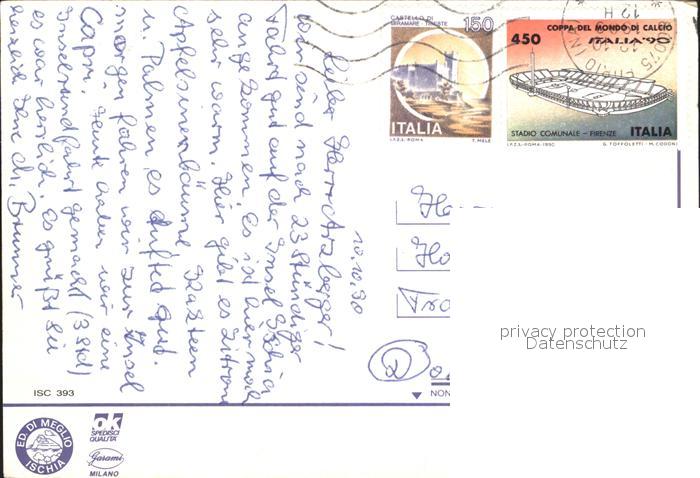 10.10.90
Lieber Herr Atzberger!
wir sind nach 23 Stündiger
Fahrt gut auf der Insel Ischia
angekommen. Es ist hier noch
sehr warm. Hier gibt es Zitron
Apfelsinenbäume Kasteen
u. Palmen es duftet gut.
morgen fahren wir zur Insel
Capri. Heute haben wir eine
Inselrundfahrt gemacht (3 Std)
es war herrlich. Es grüßt Sie
Ihre Ch. Brunner
CASTELLO DI
MIRAMARE - TRIESTE
150
ITALIA
I.P.Z.S. - ROMA T. MELE
COPPA DEL MONDO DI CALCIO
450 ITALIA '90
STADIO COMUNALE - FIRENZE ITALIA
I.P.Z.S. - ROMA - 1990 G. TOFFOLETTI - M. CODONI
12 H
D
privacy protection
Datenschutz
ISC 393
NON
ED. DI MEGLIO
ISCHIA
ok
SPEDISCI
QUALITÀ
Garami
MILANO